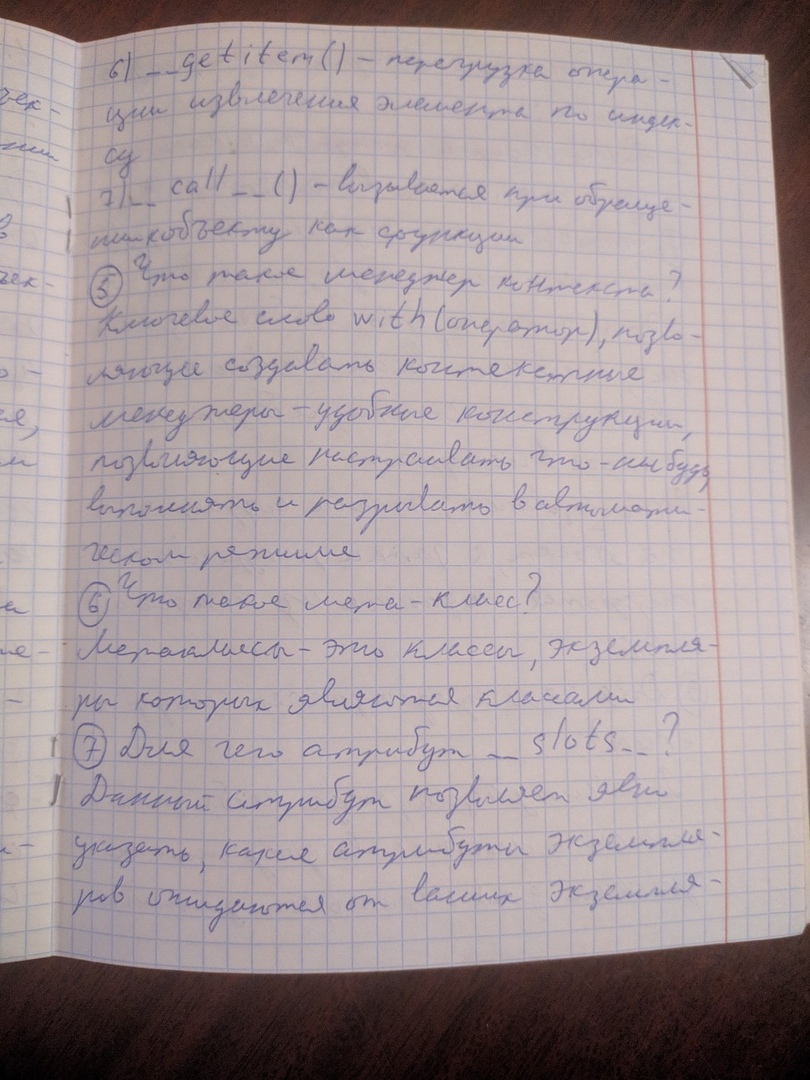 6) __getitem() – перегрузка опера-
ции извлечения элемента по индек-
су
7) __call__() – вызывается при обраще-
нии к объекту как функции
⑤ Что такое менеджер контекста?
Ключевое слово with(оператор), позво-
ляющее создавать контекстные
менеджеры – удобные конструкции,
позволяющие настраивать что-нибудь,
выполнять и разрывать в автомати-
ческом режиме
⑥ Что такое мета-класс?
Метаклассы – это классы, экземпля-
ры которых являются классами
⑦ Для чего атрибут __slots__?
Данный атрибут позволяет явно
указать, какие атрибуты экземпля-
ров ожидаются от ваших экземпля-